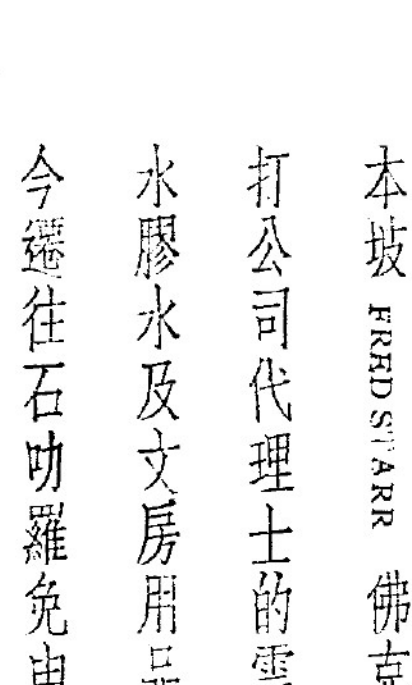 本坡 FRED STARR 佛
打公司代理士的
水膠水及文房用品
今遷往石叻羅免